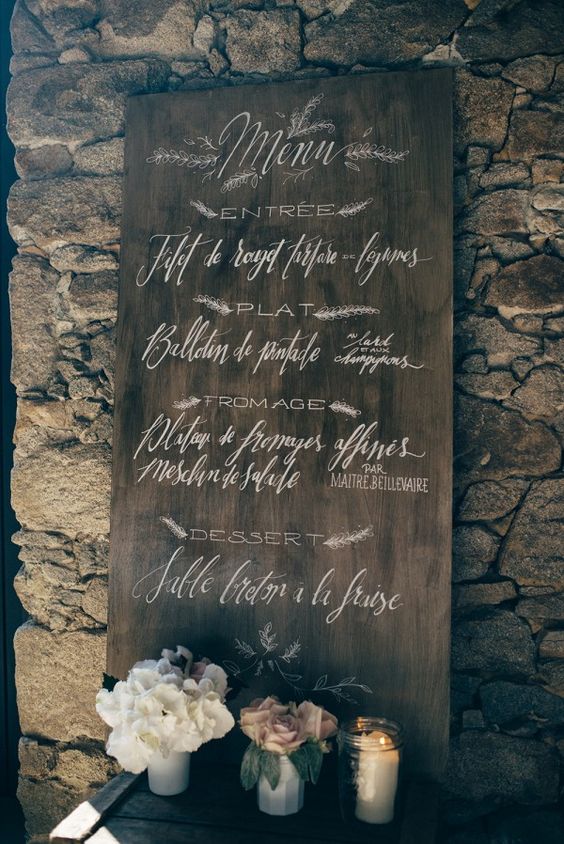 Menu
ENTRÉE
Filet de rouget tartare DE légumes
PLAT
Ballotin de pintade AU lard ET AUX champignons
FROMAGE
Plateau de fromages affinés
Mesclun de salade PAR MAITRE BEILLEVAIRE
DESSERT
Sablé breton à la fraise